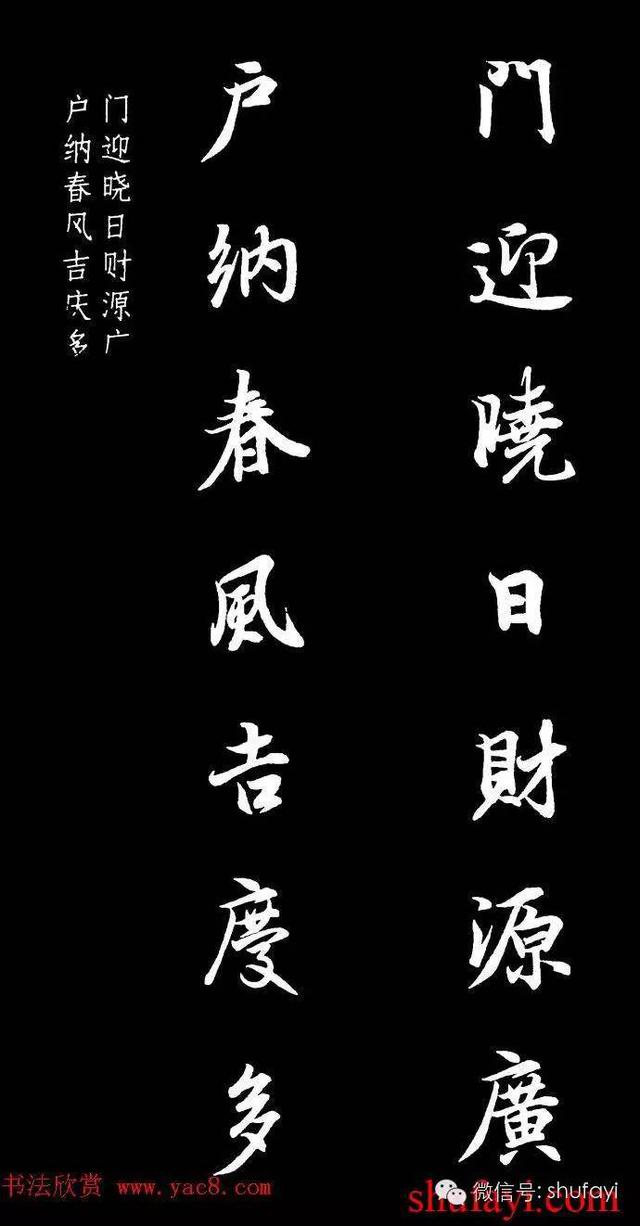 門迎曉日財源廣
户纳春風吉慶多
门迎晓日财源广
户纳春风吉庆多
书法欣赏 www.yac8.com
微信号: shufayi
shufayi.com